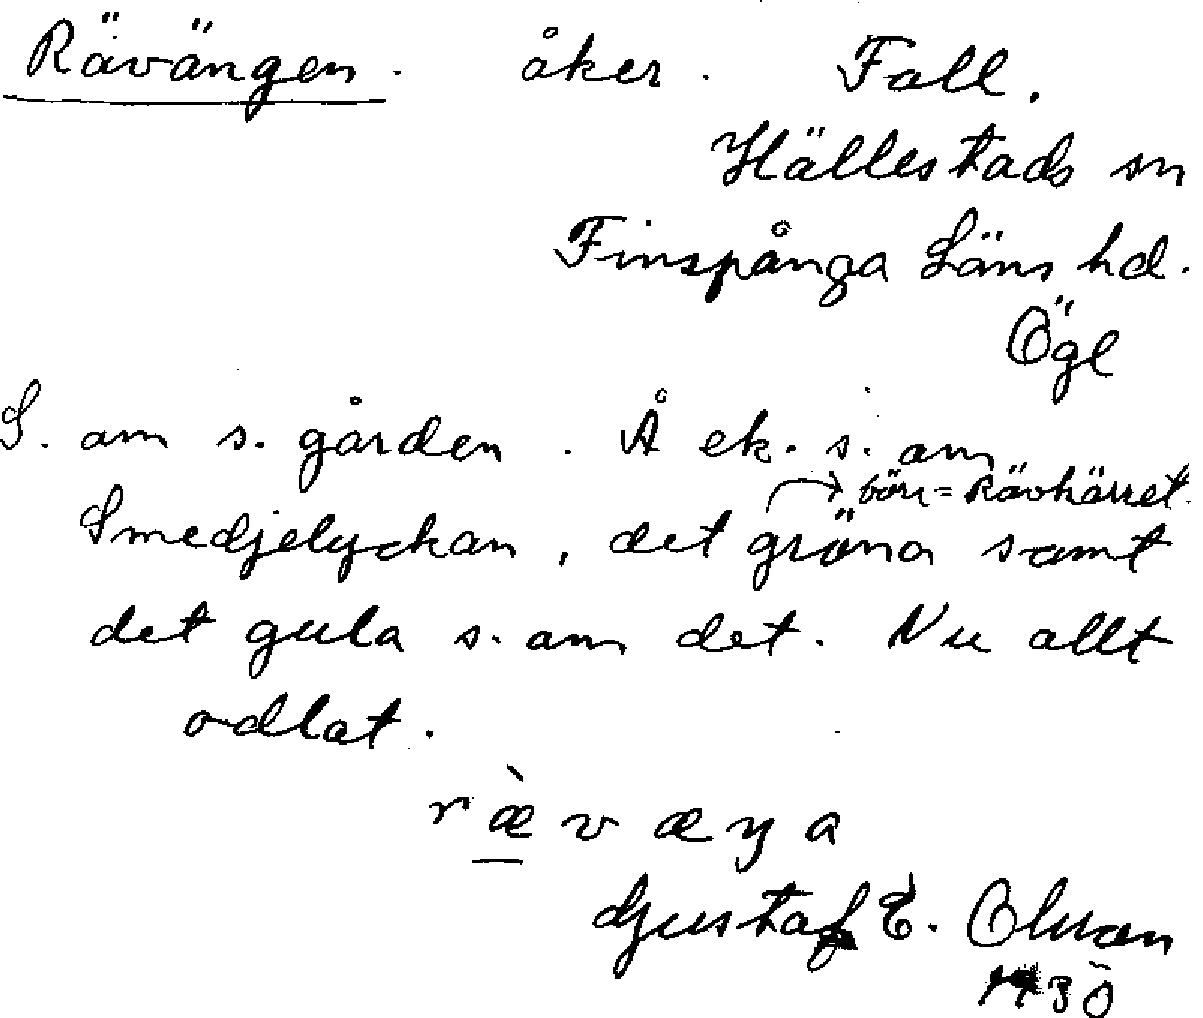 Rävängen. åker. Fall.
Hällestads sn
Finspånga Läns hd.
Ögl
S. om s. gården. Å ek. s. om
bör = Rävkärret.
Smedjelyckan, det gröna samt
det gula s. om det. Nu allt
odlat.
r æ̀ v æ ŋ a
Gustaf E. Olsson
1930